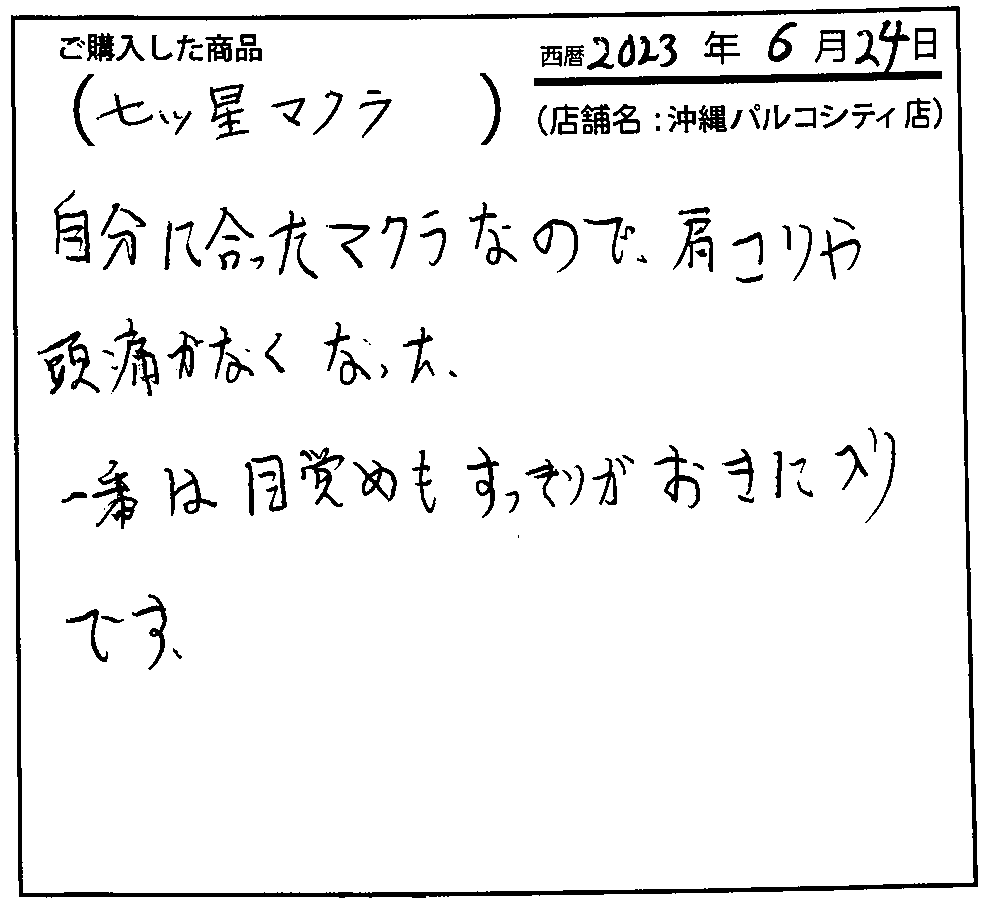 ご購入した商品
西暦2023年6月24日
(七ツ星マクラ)
(店舗名:沖縄パルコシティ店)
自分に合ったマクラなので、肩こりや
頭痛がなくなった、
一番は目覚めもすっきりがおきに入り
です、